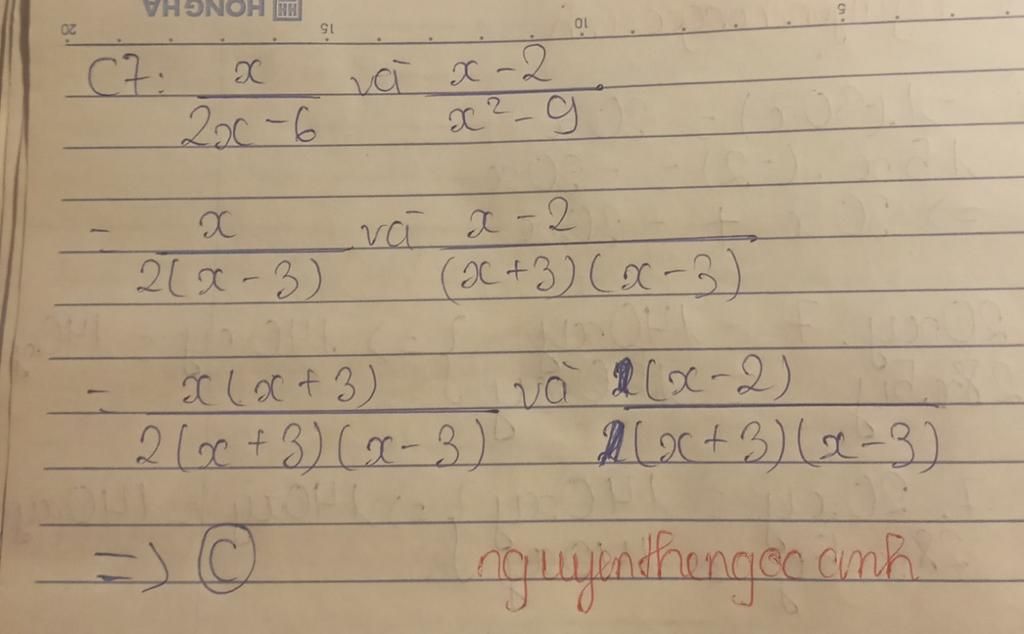 HONG HA
20 15 10 5
C7: x/(2x-6) và (x-2)/(x²-9).
- x/(2(x-3)) và (x-2)/((x+3)(x-3))
- x(x+3)/(2(x+3)(x-3)) và 2(x-2)/(2(x+3)(x-3))
=> C nguyenthengoc anh